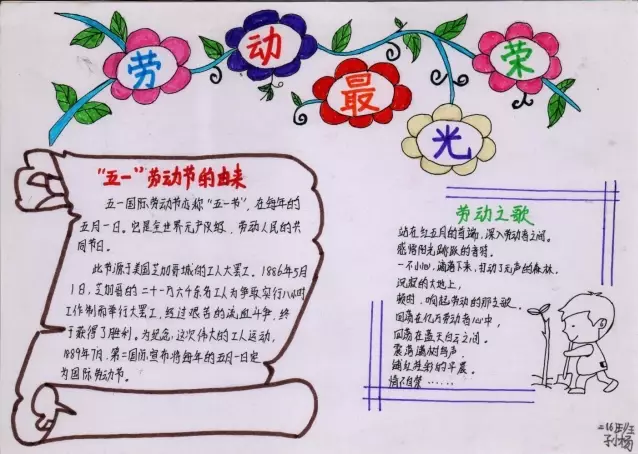 劳动最光荣
"五一"劳动节的由来
五一国际劳动节亦称"五一节",在每年的
五月一日。它是全世界无产阶级、劳动人民的共
同节日。
此节源于美国芝加哥城的工人大罢工。1886年5月
1日,芝加哥的二十一万六千余名工人为争取实行八小时
工作制而举行大罢工,经过艰苦的流血斗争,终
于获得了胜利。为纪念这次伟大的工人运动,
1889年7月,第二国际宣布将每年的五月一日定
为国际劳动节。
劳动之歌
站在红五月的首端,深入劳动者之间。
感猪阳光跳跃的音符。
一不小心,滴落下来,打动了无声的森林,
沉寂的大地上,
顿时,响起劳动的那支歌
回荡在亿万劳动者心中,
回荡在蓝天白云之间。
震落满树鸟声,
铺红炫彩的平晨。
情不自禁……
二.16班
孙杨